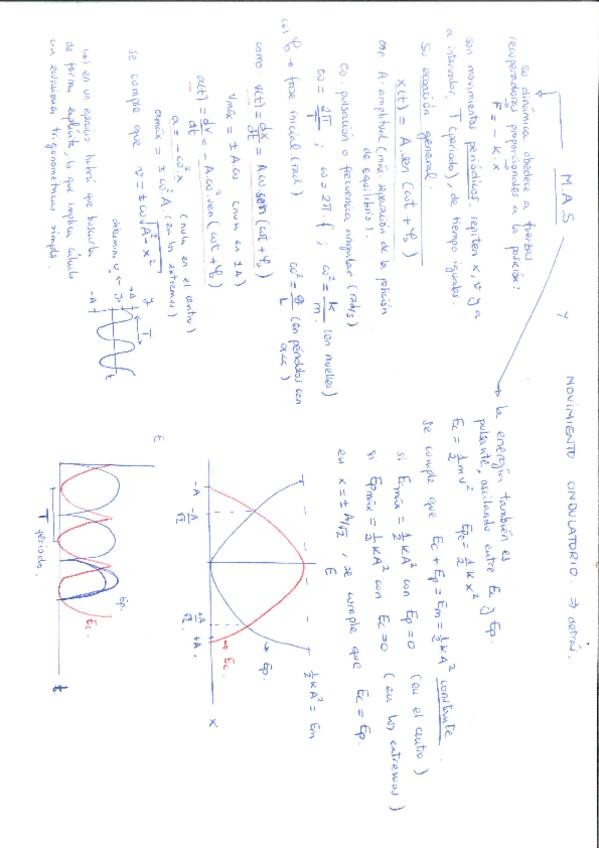 M.A.S y MOVIMIENTO ONDULATORIO. ⇒ detrás.
su dinámica obedece a fuerzas
recuperadoras proporcionales a la posición:
F = -k·x
son movimientos periódicos: repiten x, v y a
a intervalos, T (periodo), de tiempo iguales.
Su ecuación general:
x(t) = A sen (ωt + φ₀)
con A: amplitud (máx. separación de la posición
de equilibrio).
ω: pulsación o frecuencia angular (rad/s)
ω = 2π/T ; ω = 2π·f ; ω² = k/m (en muelles)
(*) φ₀ → fase inicial (rad) ω² = g/L (en péndulos con
como v(t) = dx/dt = Aω sen (ωt + φ₀)
vmáx = ± Aω (nula en ±A)
a(t) = dv/dt = -Aω² sen (ωt + φ₀)
a = -ω²·x (nula en el centro)
amáx = ± ω²A (en los extremos)
se cumple que v = ± ω√(A² - x²)
(*) en un ejercicio habrá que buscarla
de forma explícita, lo que implica cálculo
trigonométricas simple.
y
+A
-A
T
t
→ la energía también es
pulsante, oscilando entre Ec y Ep.
Ec = ½mv² Epe = ½kx²
se cumple que Ec + Ep = Em = ½kA² constante.
si Ecmáx = ½kA² con Ep = 0 (en el centro)
si Epmáx = ½kA² con Ec = 0 (en los extremos)
en x = ± A/√2, se cumple que Ec = Ep.
E
½kA² = Em
Ep.
Ec.
-A
-A/√2
+A/√2
+A
x
E
Ep.
Ec.
T
periodo.
t